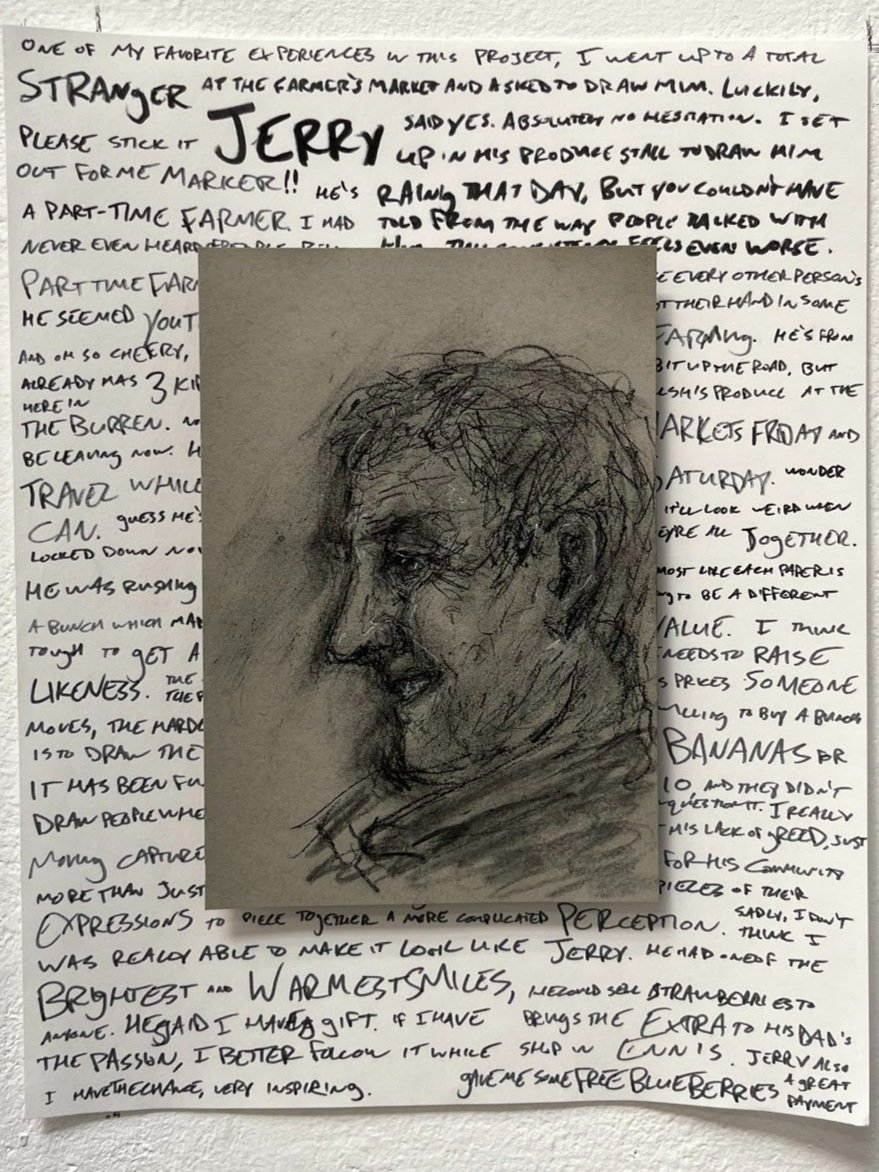 ONE OF MY FAVORITE EXPERIENCES IN THIS PROJECT, I WENT UP TO A TOTAL
STRANGER AT THE FARMER'S MARKET AND ASKED TO DRAW HIM. LUCKILY,
JERRY SAID YES. ABSOLUTELY NO HESITATION. I SET
PLEASE STICK IT UP IN HIS PRODUCE STALL TO DRAW HIM
OUT FOR ME MARKER!!
HE'S
A PART-TIME FARMER. I HAD
NEVER EVEN HEARD
PART TIME
HE SEEMED
AND OH SO CHEERY,
ALREADY HAS 3
HERE IN
THE BURREN.
BE LEAVING NOW.
TRAVEL WHILE
CAN. GUESS HE'S
LOCKED DOWN
HE WAS RUSHING
A BUNCH WHICH
TOUGH TO GET A
LIKENESS. THE
MOVES, THE
IS TO DRAW THE
IT HAS BEEN
DRAW PEOPLE
MOVING CAPTURE
MORE THAN JUST
RAINY THAT DAY, BUT YOU COULDN'T HAVE
TOLD FROM THE WAY PEOPLE TALKED WITH
FEELS EVEN WORSE.
EVERY OTHER PERSON'S
THEIR HAND IN SOME
FARMING. HE'S FROM
BIT UP THE ROAD, BUT
PRODUCE AT THE
MARKETS FRIDAY AND
SATURDAY. WONDER
IT'LL LOOK WEIRD WHEN
ALL TOGETHER.
MOST LIKE EACH PAPER IS
TO BE A DIFFERENT
VALUE. I THINK
NEEDS TO RAISE
PRICES SOMEONE
WILLING TO BUY A BUNCH
BANANAS OR
10, AND THEY DIDN'T
QUESTION IT. I REALLY
HIS LACK OF GREED, JUST
FOR HIS COMMUNITY
PIECES OF THEIR
EXPRESSIONS TO PIECE TOGETHER A MORE COMPLICATED PERCEPTION. SADLY, I DON'T
THINK I
WAS REALLY ABLE TO MAKE IT LOOK LIKE JERRY. HE HAD ONE OF THE
BRIGHTEST AND WARMEST SMILES, HE COULD SELL STRAWBERRIES TO
ANYONE. HE SAID I HAVE A GIFT. IF I HAVE BRINGS THE EXTRA TO HIS DAD'S
THE PASSION, I BETTER FOLLOW IT WHILE SHOP IN ENNIS. JERRY ALSO
I HAVE THE CHANCE, VERY INSPIRING. GAVE ME SOME FREE BLUEBERRIES A GREAT
PAYMENT